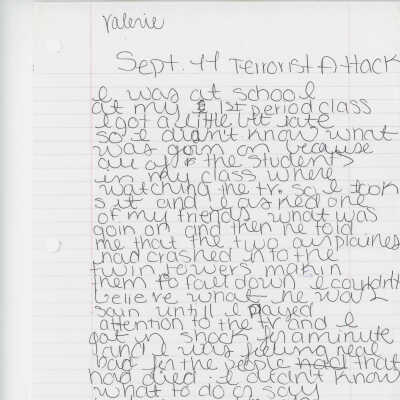 Valerie
Sept. 11 Terrorist Attack
I was at school
at my 1st period class
I got a little bit late
so I didn't know what
was goin on because
all of the students
in my class where
watching the tv. so I took
a sit and I asked one
of my friends what was
goin on and then he told
me that the two airplaines
had crashed into the
twin towers makin
them to fall down I couldn't
believe what he was
sain untill I payed
attention to the tv and I
got in shock for a minute
and I was feeling real
bad for the people that
had died. I didn't know
what to do or say